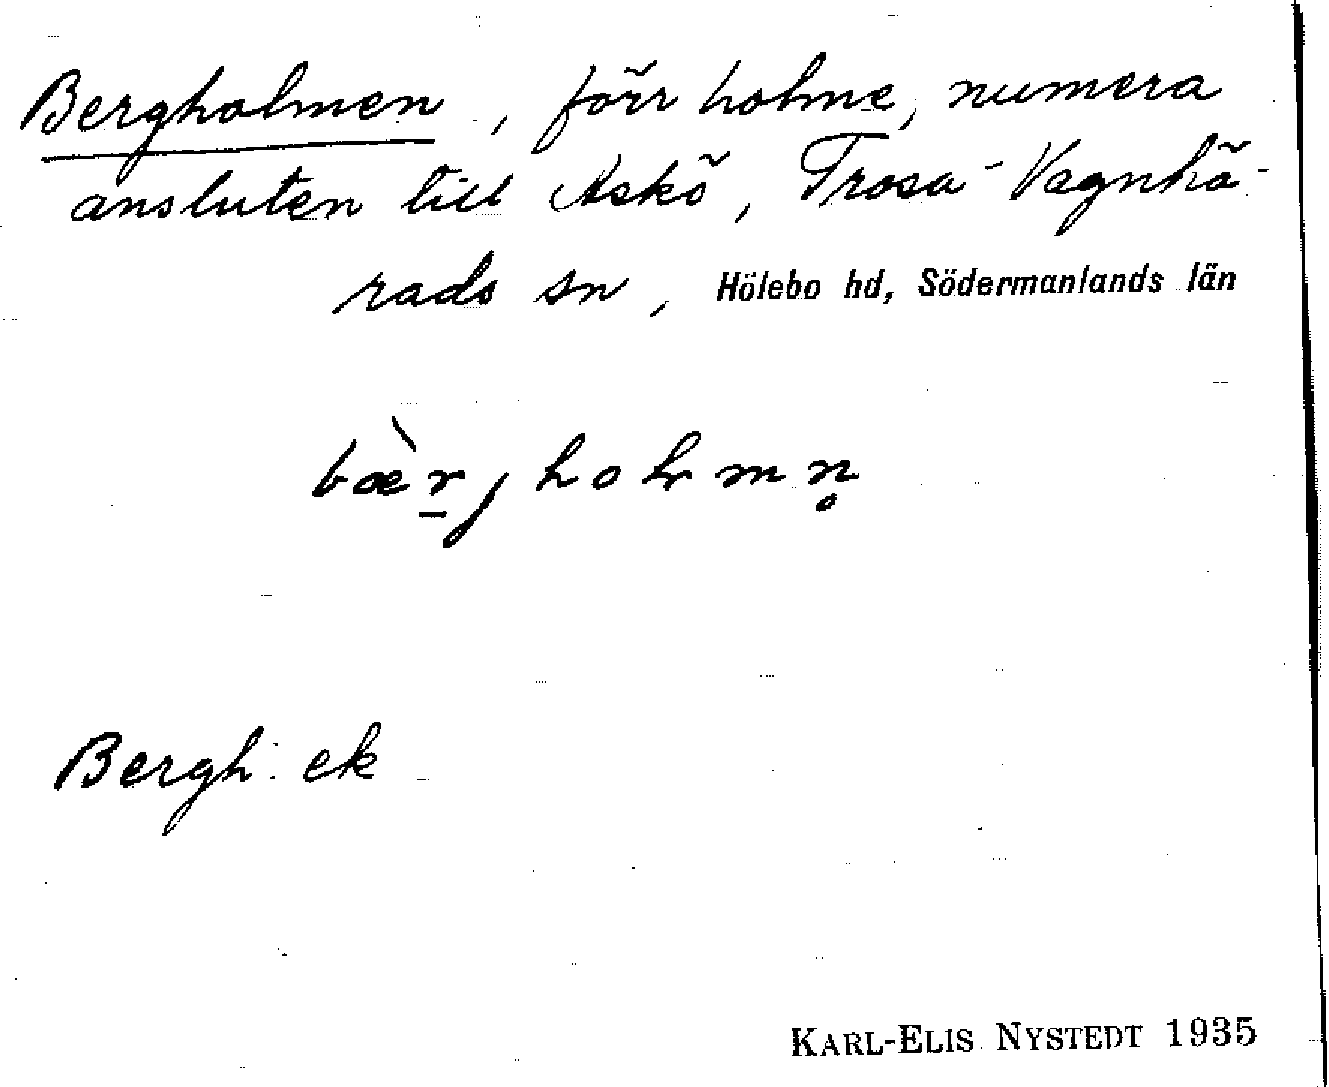 Bergholmen, förr holme, numera
ansluten till Askö, Trosa-Vagnhä-
rads sn, Hölebo hd, Södermanlands län
bæ̀r̠jholmn̥
Bergh: ek
KARL-ELIS NYSTEDT 1935